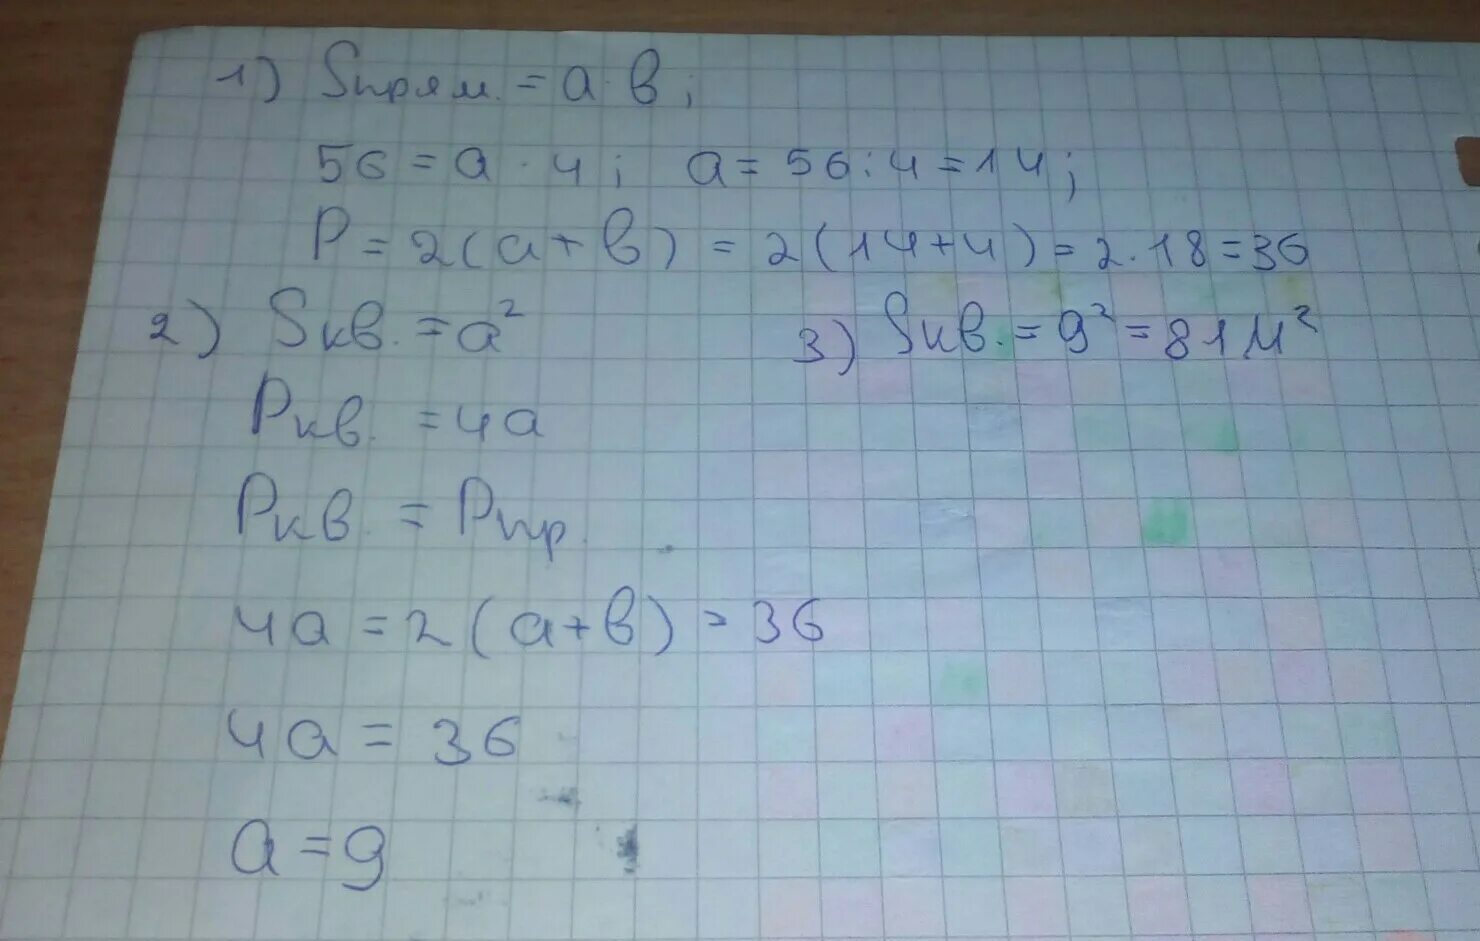 1) Sпрям. = a · в;
56 = a · 4; a = 56 : 4 = 14;
P = 2(a + в) = 2(14 + 4) = 2 · 18 = 36
2) Sкв. = a²
3) Sкв. = 9² = 81 м²
Pкв. = 4a
Pкв. = Pпр.
4a = 2(a + в) = 36
4a = 36
a = 9